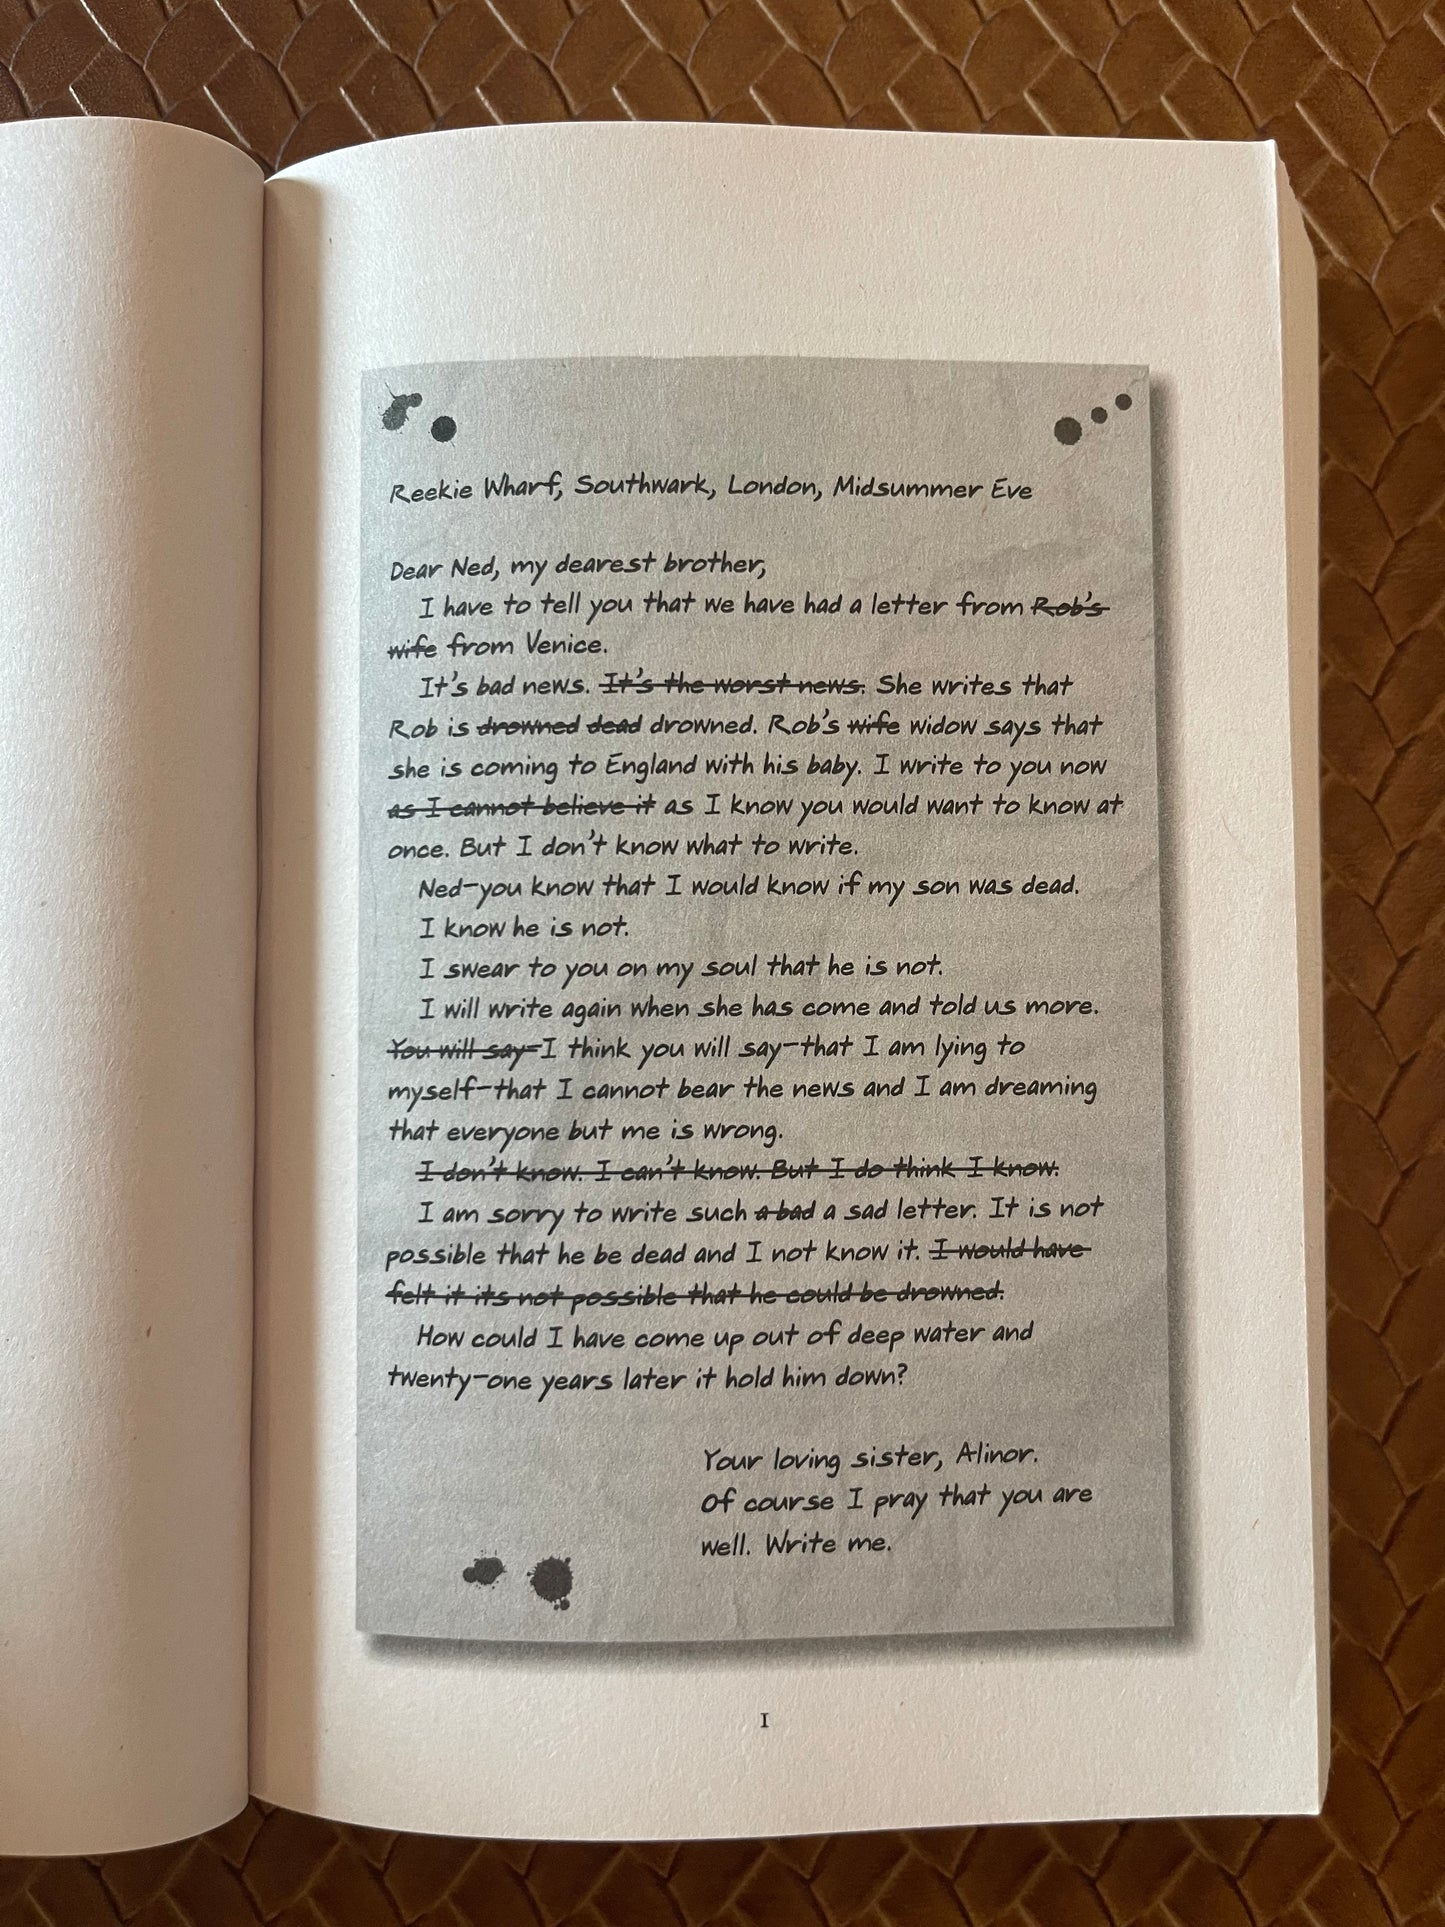 Reekie Wharf, Southwark, London, Midsummer Eve
Dear Ned, my dearest brother,
I have to tell you that we have had a letter from Rob's
wife from Venice.
It's bad news. It's the worst news. She writes that
Rob is drowned dead drowned. Rob's wife widow says that
she is coming to England with his baby. I write to you now
as I cannot believe it as I know you would want to know at
once. But I don't know what to write.
Ned—you know that I would know if my son was dead.
I know he is not.
I swear to you on my soul that he is not.
I will write again when she has come and told us more.
You will say—I think you will say—that I am lying to
myself—that I cannot bear the news and I am dreaming
that everyone but me is wrong.
I don't know. I can't know. But I do think I know.
I am sorry to write such a bad a sad letter. It is not
possible that he be dead and I not know it. I would have
felt it its not possible that he could be drowned.
How could I have come up out of deep water and
twenty-one years later it hold him down?
Your loving sister, Alinor.
Of course I pray that you are
well. Write me.
1